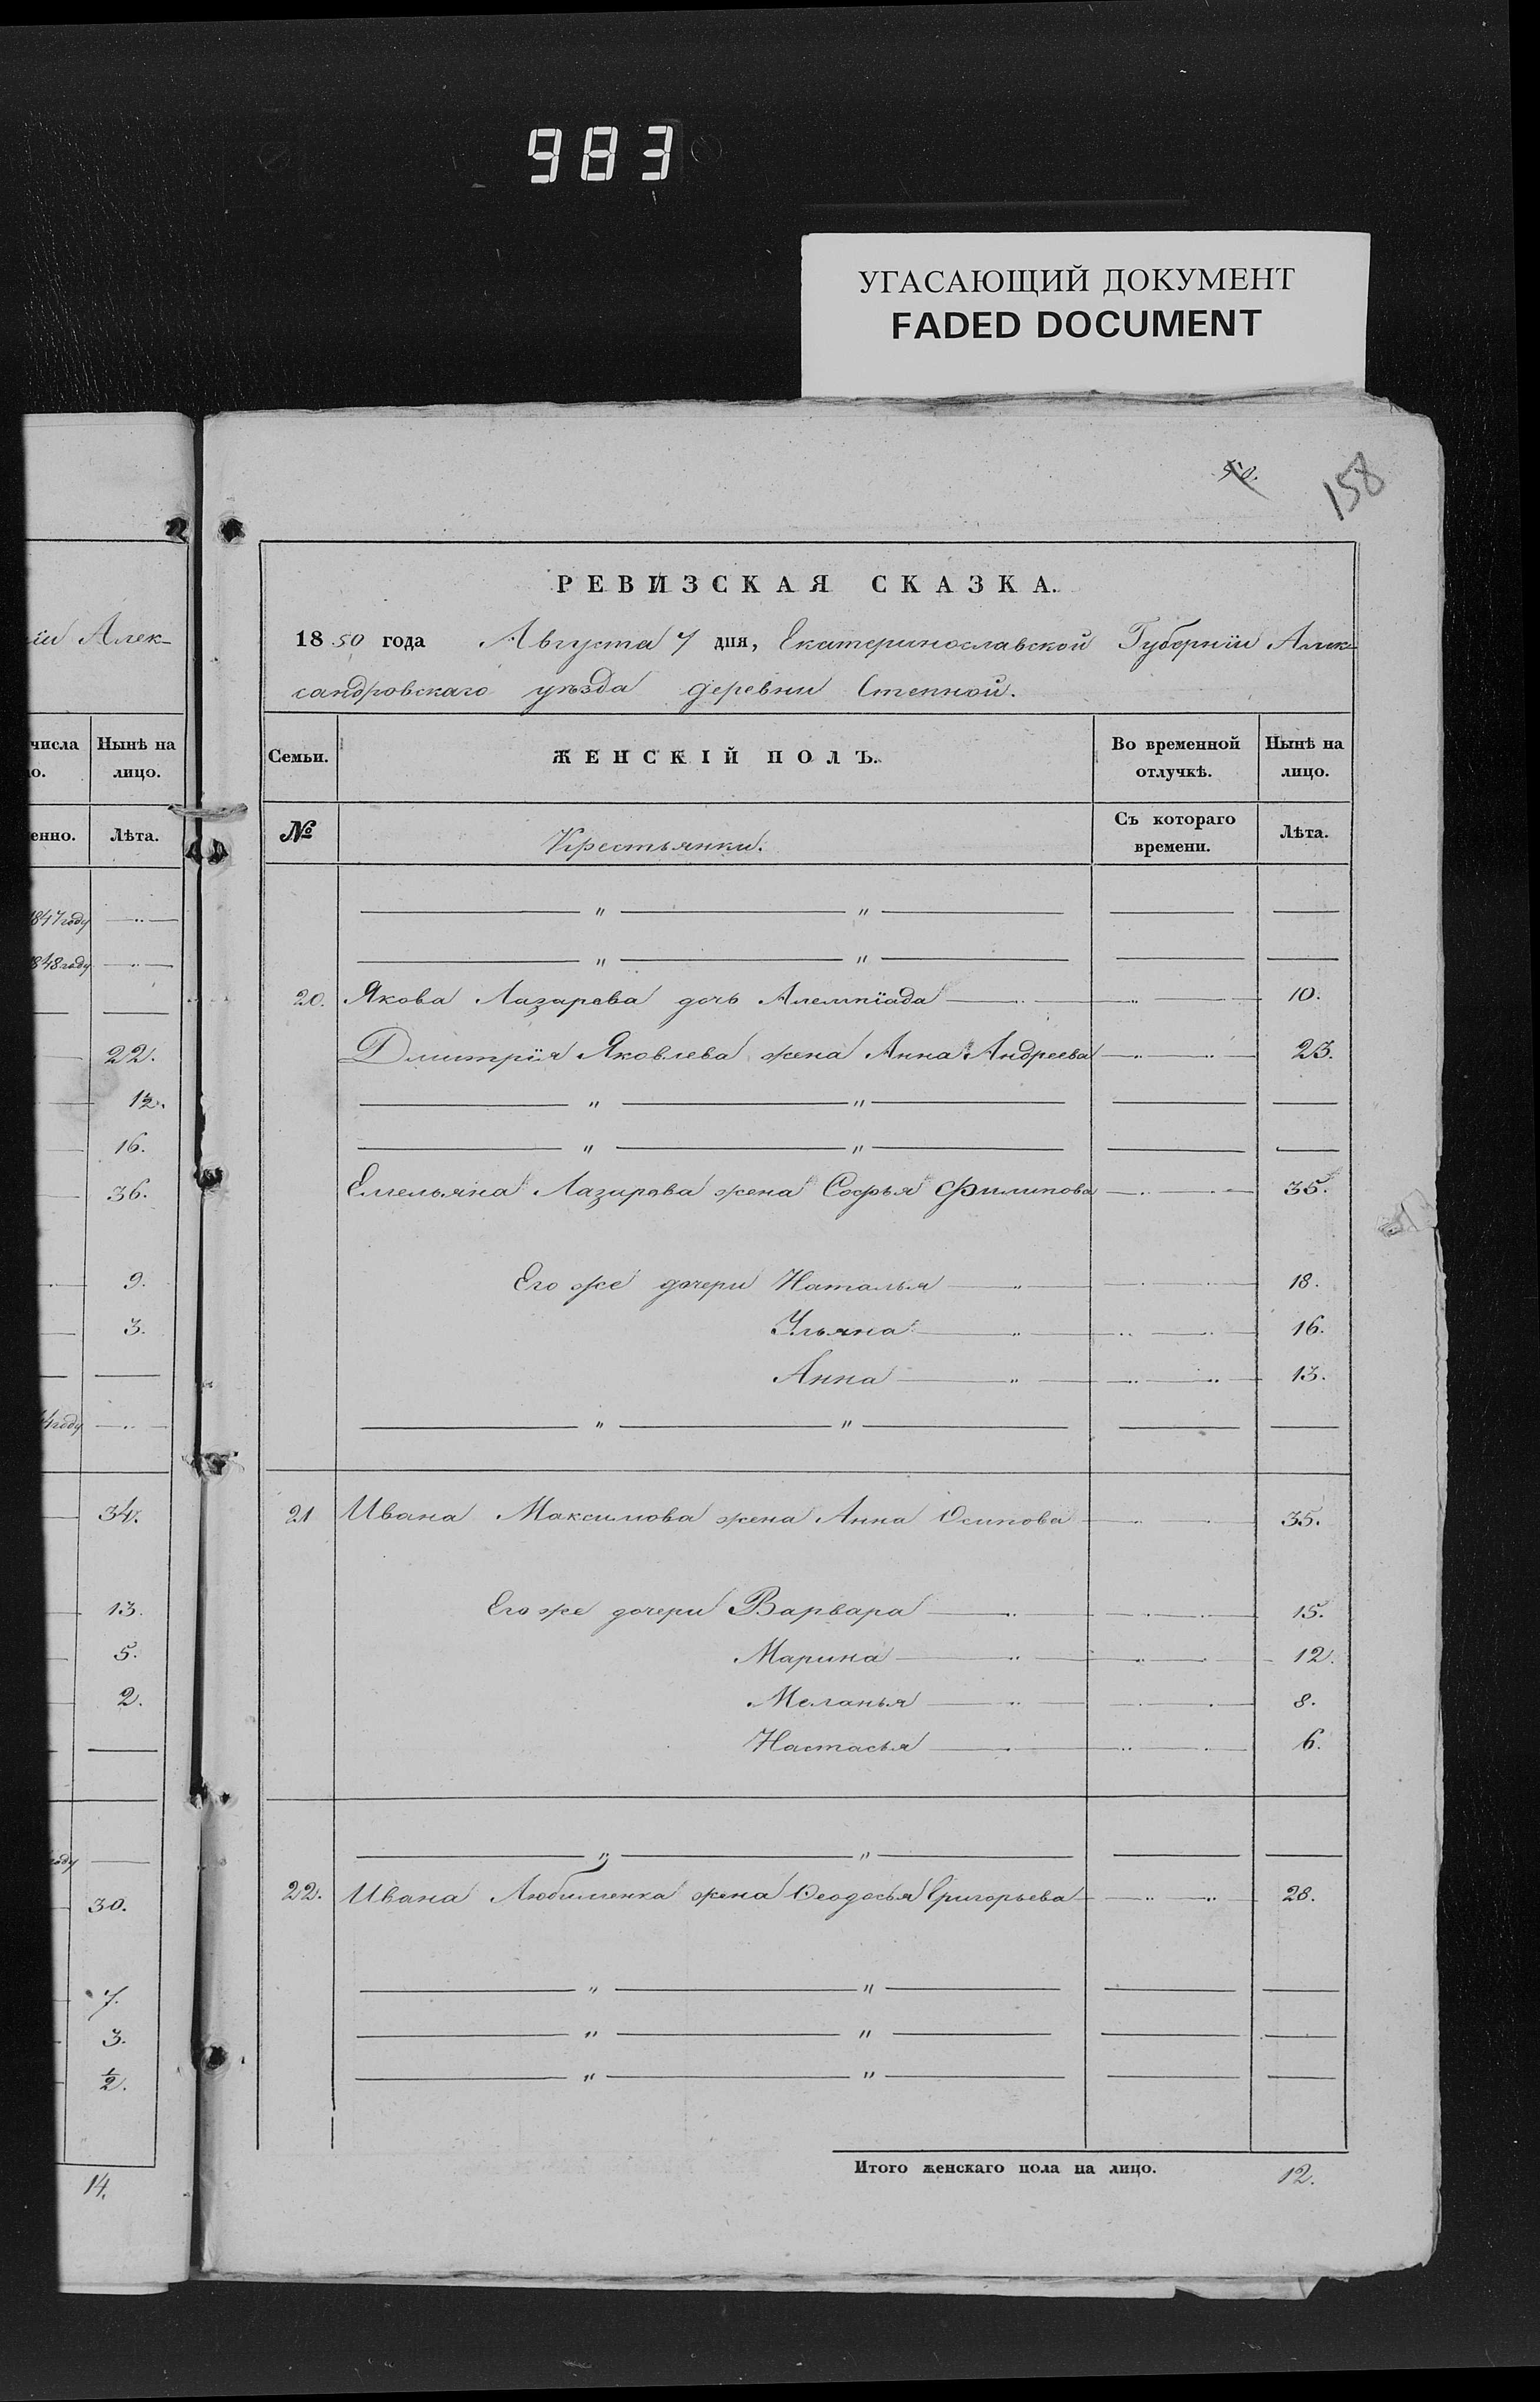 983
УГАСАЮЩИЙ ДОКУМЕНТ
FADED DOCUMENT
50.
158
їи Алек-
числа Нынѣ на
о. лицо.
енно. Лѣта.
1847 году
1848 году
22.
12.
16.
36.
9.
3.
4 году
34.
13.
5.
2.
году
30.
7.
3.
1/2.
14.
РЕВИЗСКАЯ СКАЗКА.
1850 года Августа 7 дня, Екатеринославской Губернїи Алек-
сандровскаго уѣзда деревни Степной.
Семьи. ЖЕНСКІЙ ПОЛЪ. Во временной отлучкѣ. Нынѣ на лицо.
№ Крестьянки. Съ котораго времени. Лѣта.
" "
" "
20. Якова Лазарева дочь Алемпїада 10.
Дмитрїя Яковлева жена Анна Андреева 23.
" "
" "
Емельяна Лазарева жена Софья Филипова 35.
Его же дочери Наталья 18.
Ульяна 16.
Анна 13.
" "
21 Ивана Максимова жена Анна Осипова 35.
Его же дочери Варвара 15.
Марина 12.
Меланья 8.
Настасья 6.
" "
22. Ивана Любименка жена Ѳеодосья Григорьева 28.
" "
" "
" "
Итого женскаго пола на лицо. 12.